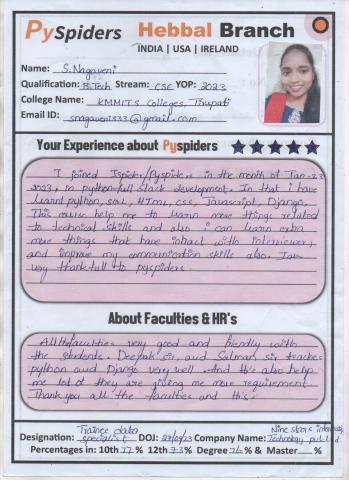 PySpiders Hebbal Branch
INDIA | USA | IRELAND
Name: S.Nagaveni
Qualification: B.Tech Stream: CSE YOP: 2023
College Name: KMMITS Colleges, Tirupati
Email ID: snagaveni333@gmail.com
Your Experience about Pyspiders
I joined Jspider/Pyspiders in the month of Jan-23
2023, in python full stack development. In that i have
learnt python, SQL, HTML, CSS, Javascript, Django.
This course help me to learn more things related
to technical skills and also i can learn extra
more things that have intract with interviewer,
and improve my communication skills also. I am
very thankfull to pyspiders.
About Faculties & HR's
All the faculties very good and friendly with
the students. Deepak sir, and Salman sir teaches
python and Django very well. And Hr's also help
me lot of they are giving me more requirement.
Thank you all the faculties and Hr's.
Trainee data Nine Stars
Designation: specialist DOJ: Company Name: Technology pvt.Ltd
Percentages in: 10th 77 % 12th 73 % Degree % & Master %